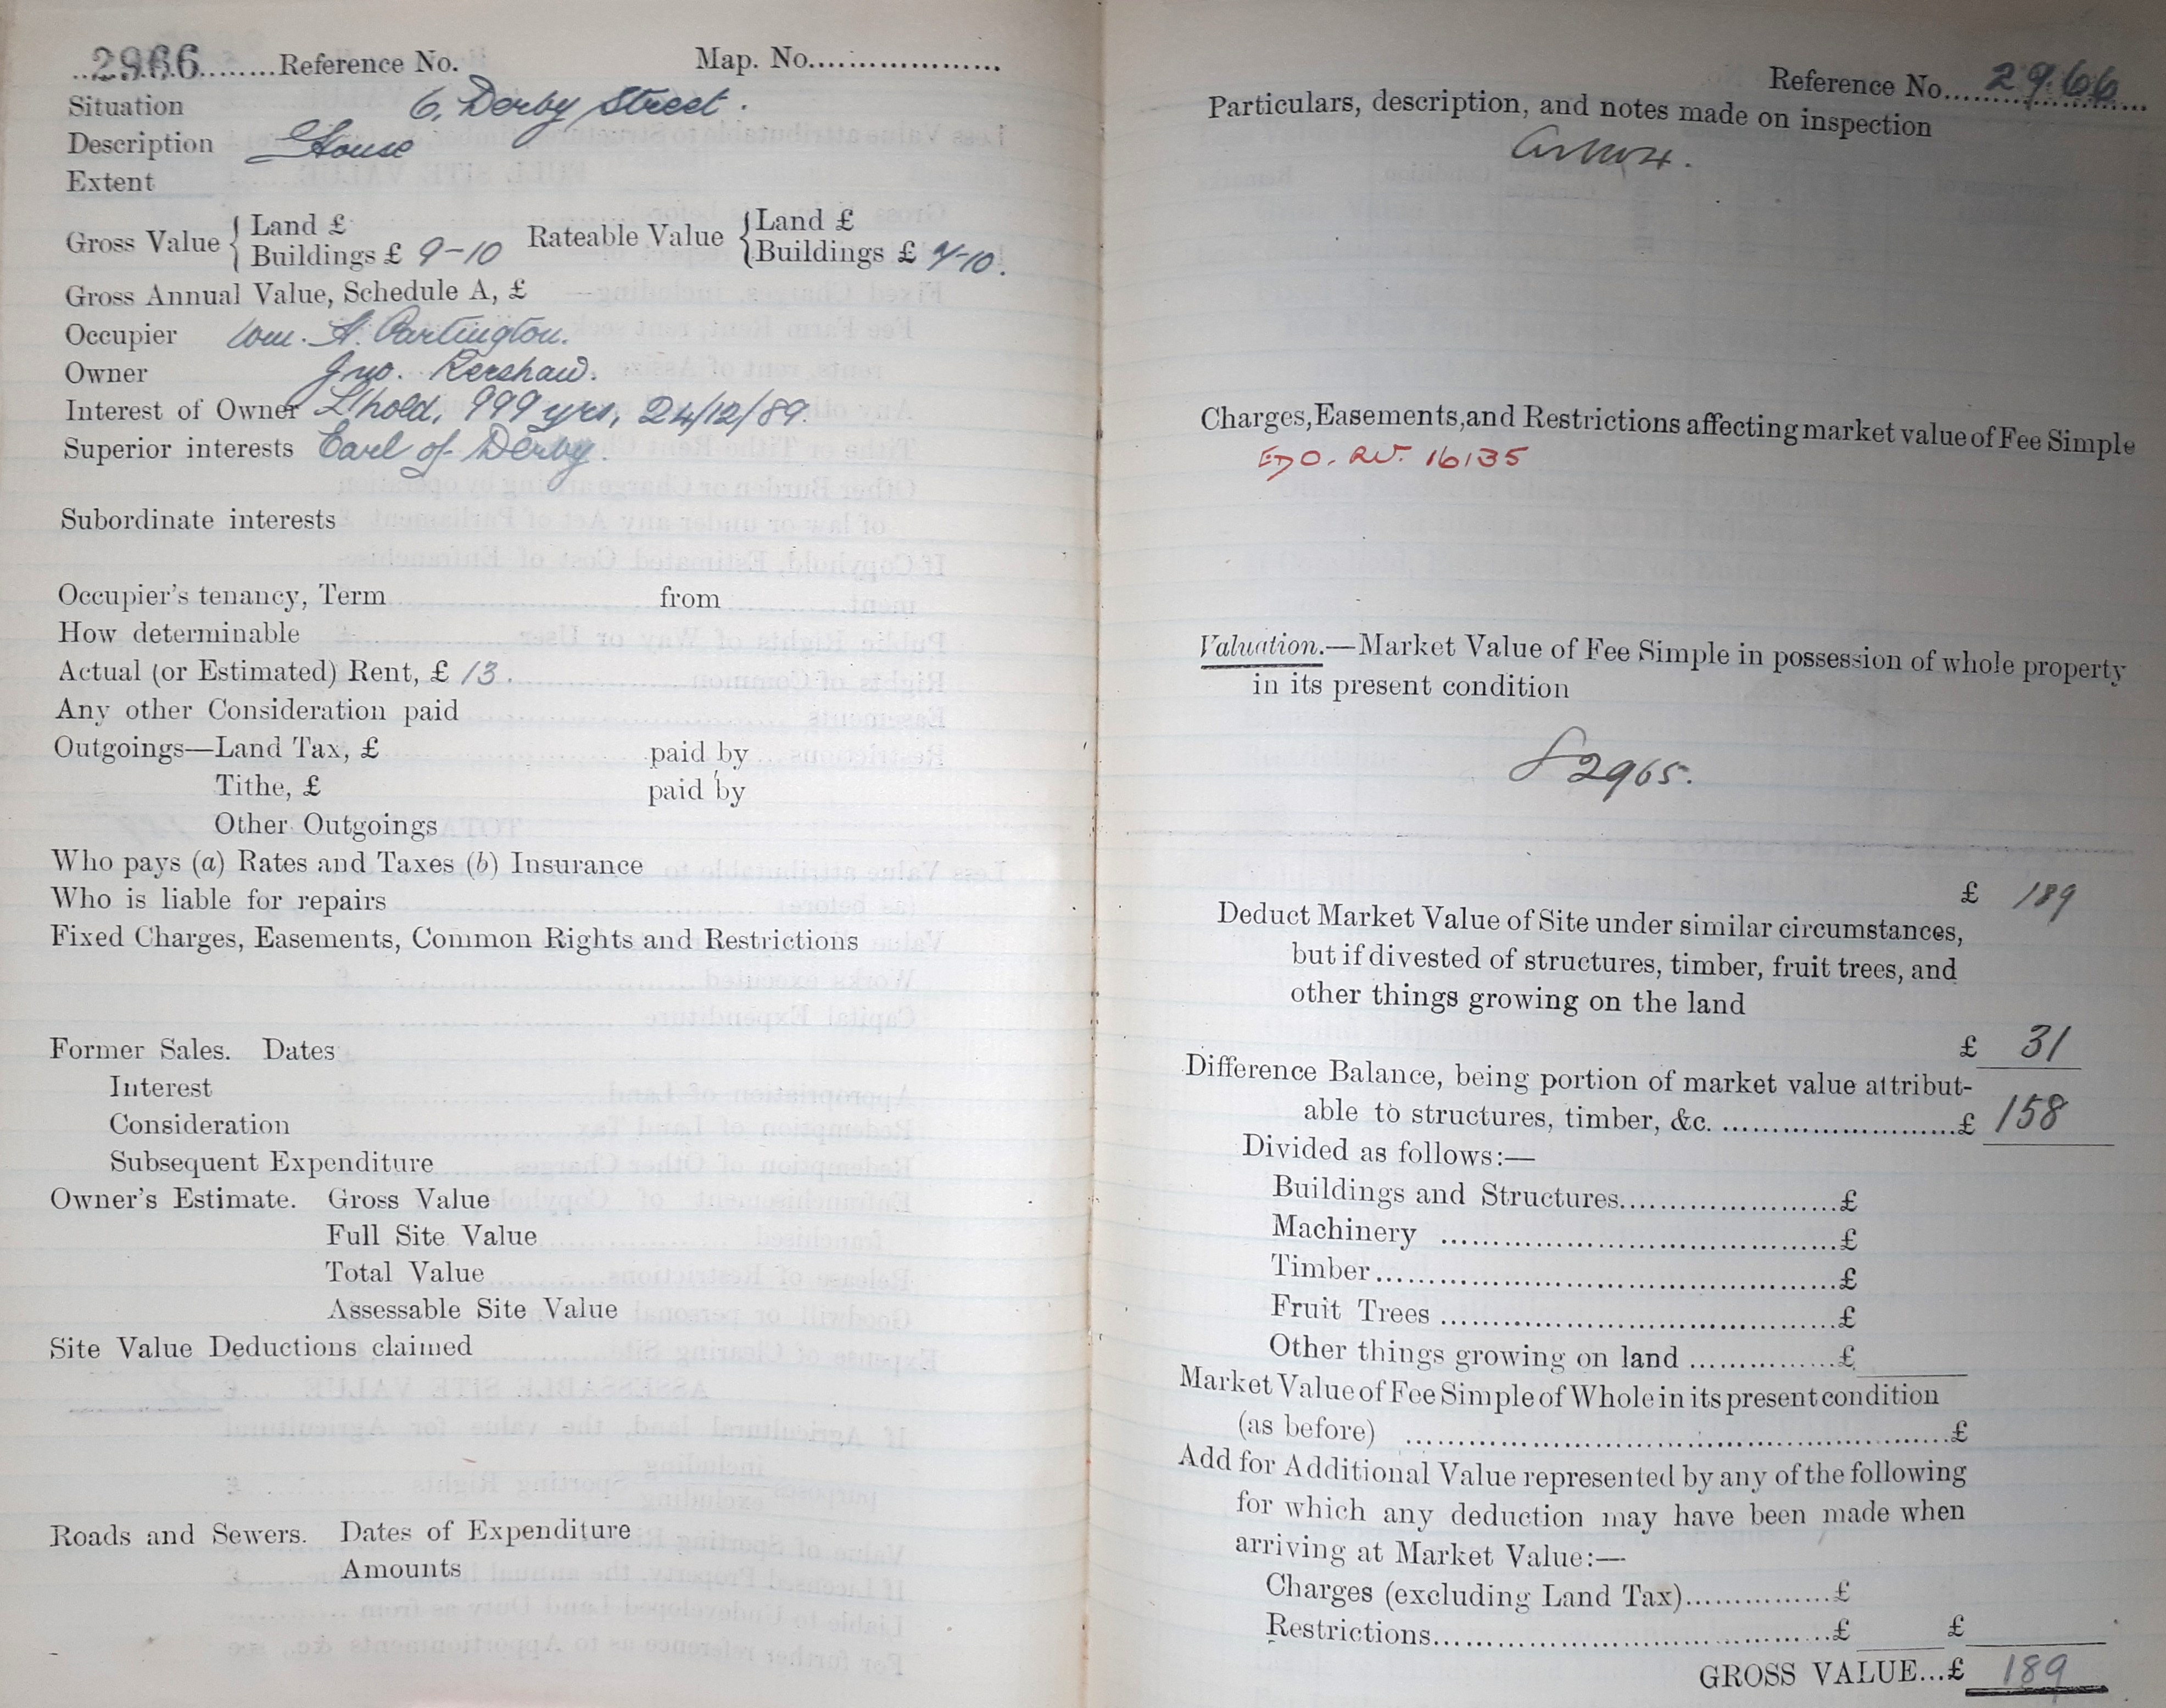 2966 Reference No. Map. No.
Situation 6, Derby Street.
Description House
Extent
Gross Value { Land £
Buildings £ 9-10 Rateable Value { Land £
Buildings £
Gross Annual Value, Schedule A, £
Occupier Wm. H. Partington.
Owner Jno. Kershaw.
Interest of Owner L'hold, 999 yrs, 24/12/89.
Superior interests Earl of Derby.
Subordinate interests
Occupier's tenancy, Term from
How determinable
Actual (or Estimated) Rent, £ 13.
Any other Consideration paid
Outgoings—Land Tax, £ paid by
Tithe, £ paid by
Other Outgoings
Who pays (a) Rates and Taxes (b) Insurance
Who is liable for repairs
Fixed Charges, Easements, Common Rights and Restrictions
Former Sales. Dates
Interest
Consideration
Subsequent Expenditure
Owner's Estimate. Gross Value
Full Site Value
Total Value
Assessable Site Value
Site Value Deductions claimed
Roads and Sewers. Dates of Expenditure
Amounts
Reference No. 2966
Particulars, description, and notes made on inspection
Charges, Easements, and Restrictions affecting market value of Fee Simple
16135
Valuation.—Market Value of Fee Simple in possession of whole property
in its present condition
2965.
£ 189
Deduct Market Value of Site under similar circumstances,
but if divested of structures, timber, fruit trees, and
other things growing on the land
£ 31
Difference Balance, being portion of market value attribut-
able to structures, timber, &c. £ 158
Divided as follows:—
Buildings and Structures £
Machinery £
Timber £
Fruit Trees £
Other things growing on land £
Market Value of Fee Simple of Whole in its present condition
(as before) £
Add for Additional Value represented by any of the following
for which any deduction may have been made when
arriving at Market Value:—
Charges (excluding Land Tax) £
Restrictions £ £
GROSS VALUE...£ 189